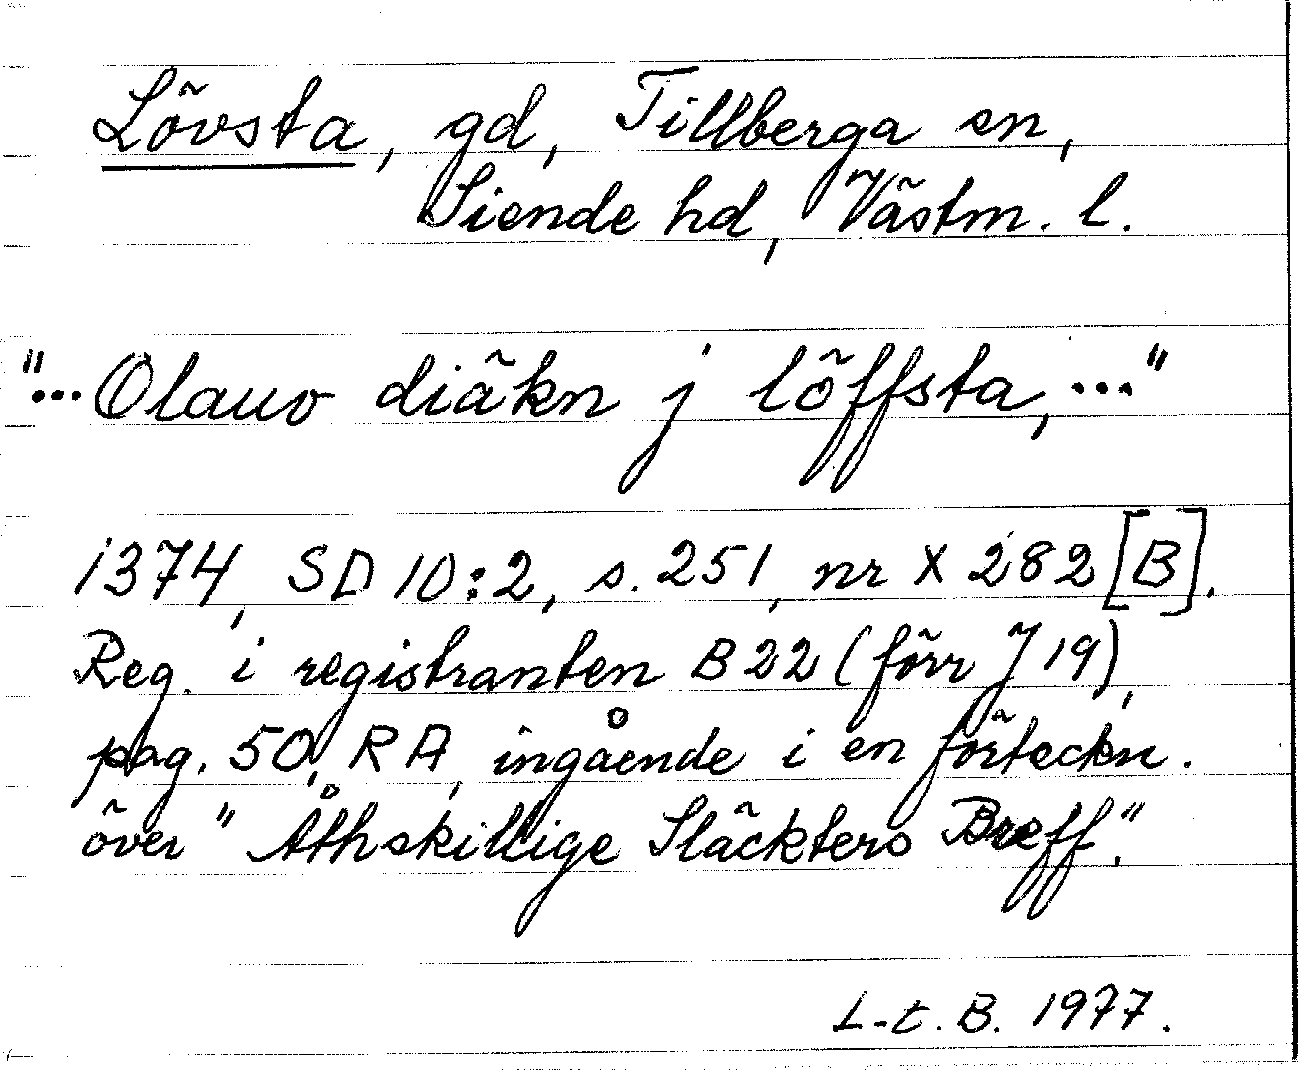 Lövsta, gd, Tillberga sn,
Siende hd, Västm. l.
"... Olauo diäkn j löffsta, ..."
1374, SD 10:2, s. 251, nr X 282 [B].
Reg. i registranten B 22 (förr J 19),
pag. 50, RA, ingående i en förteckn.
över "Åthskillige Släckters Breff".
L-t. B. 1977.